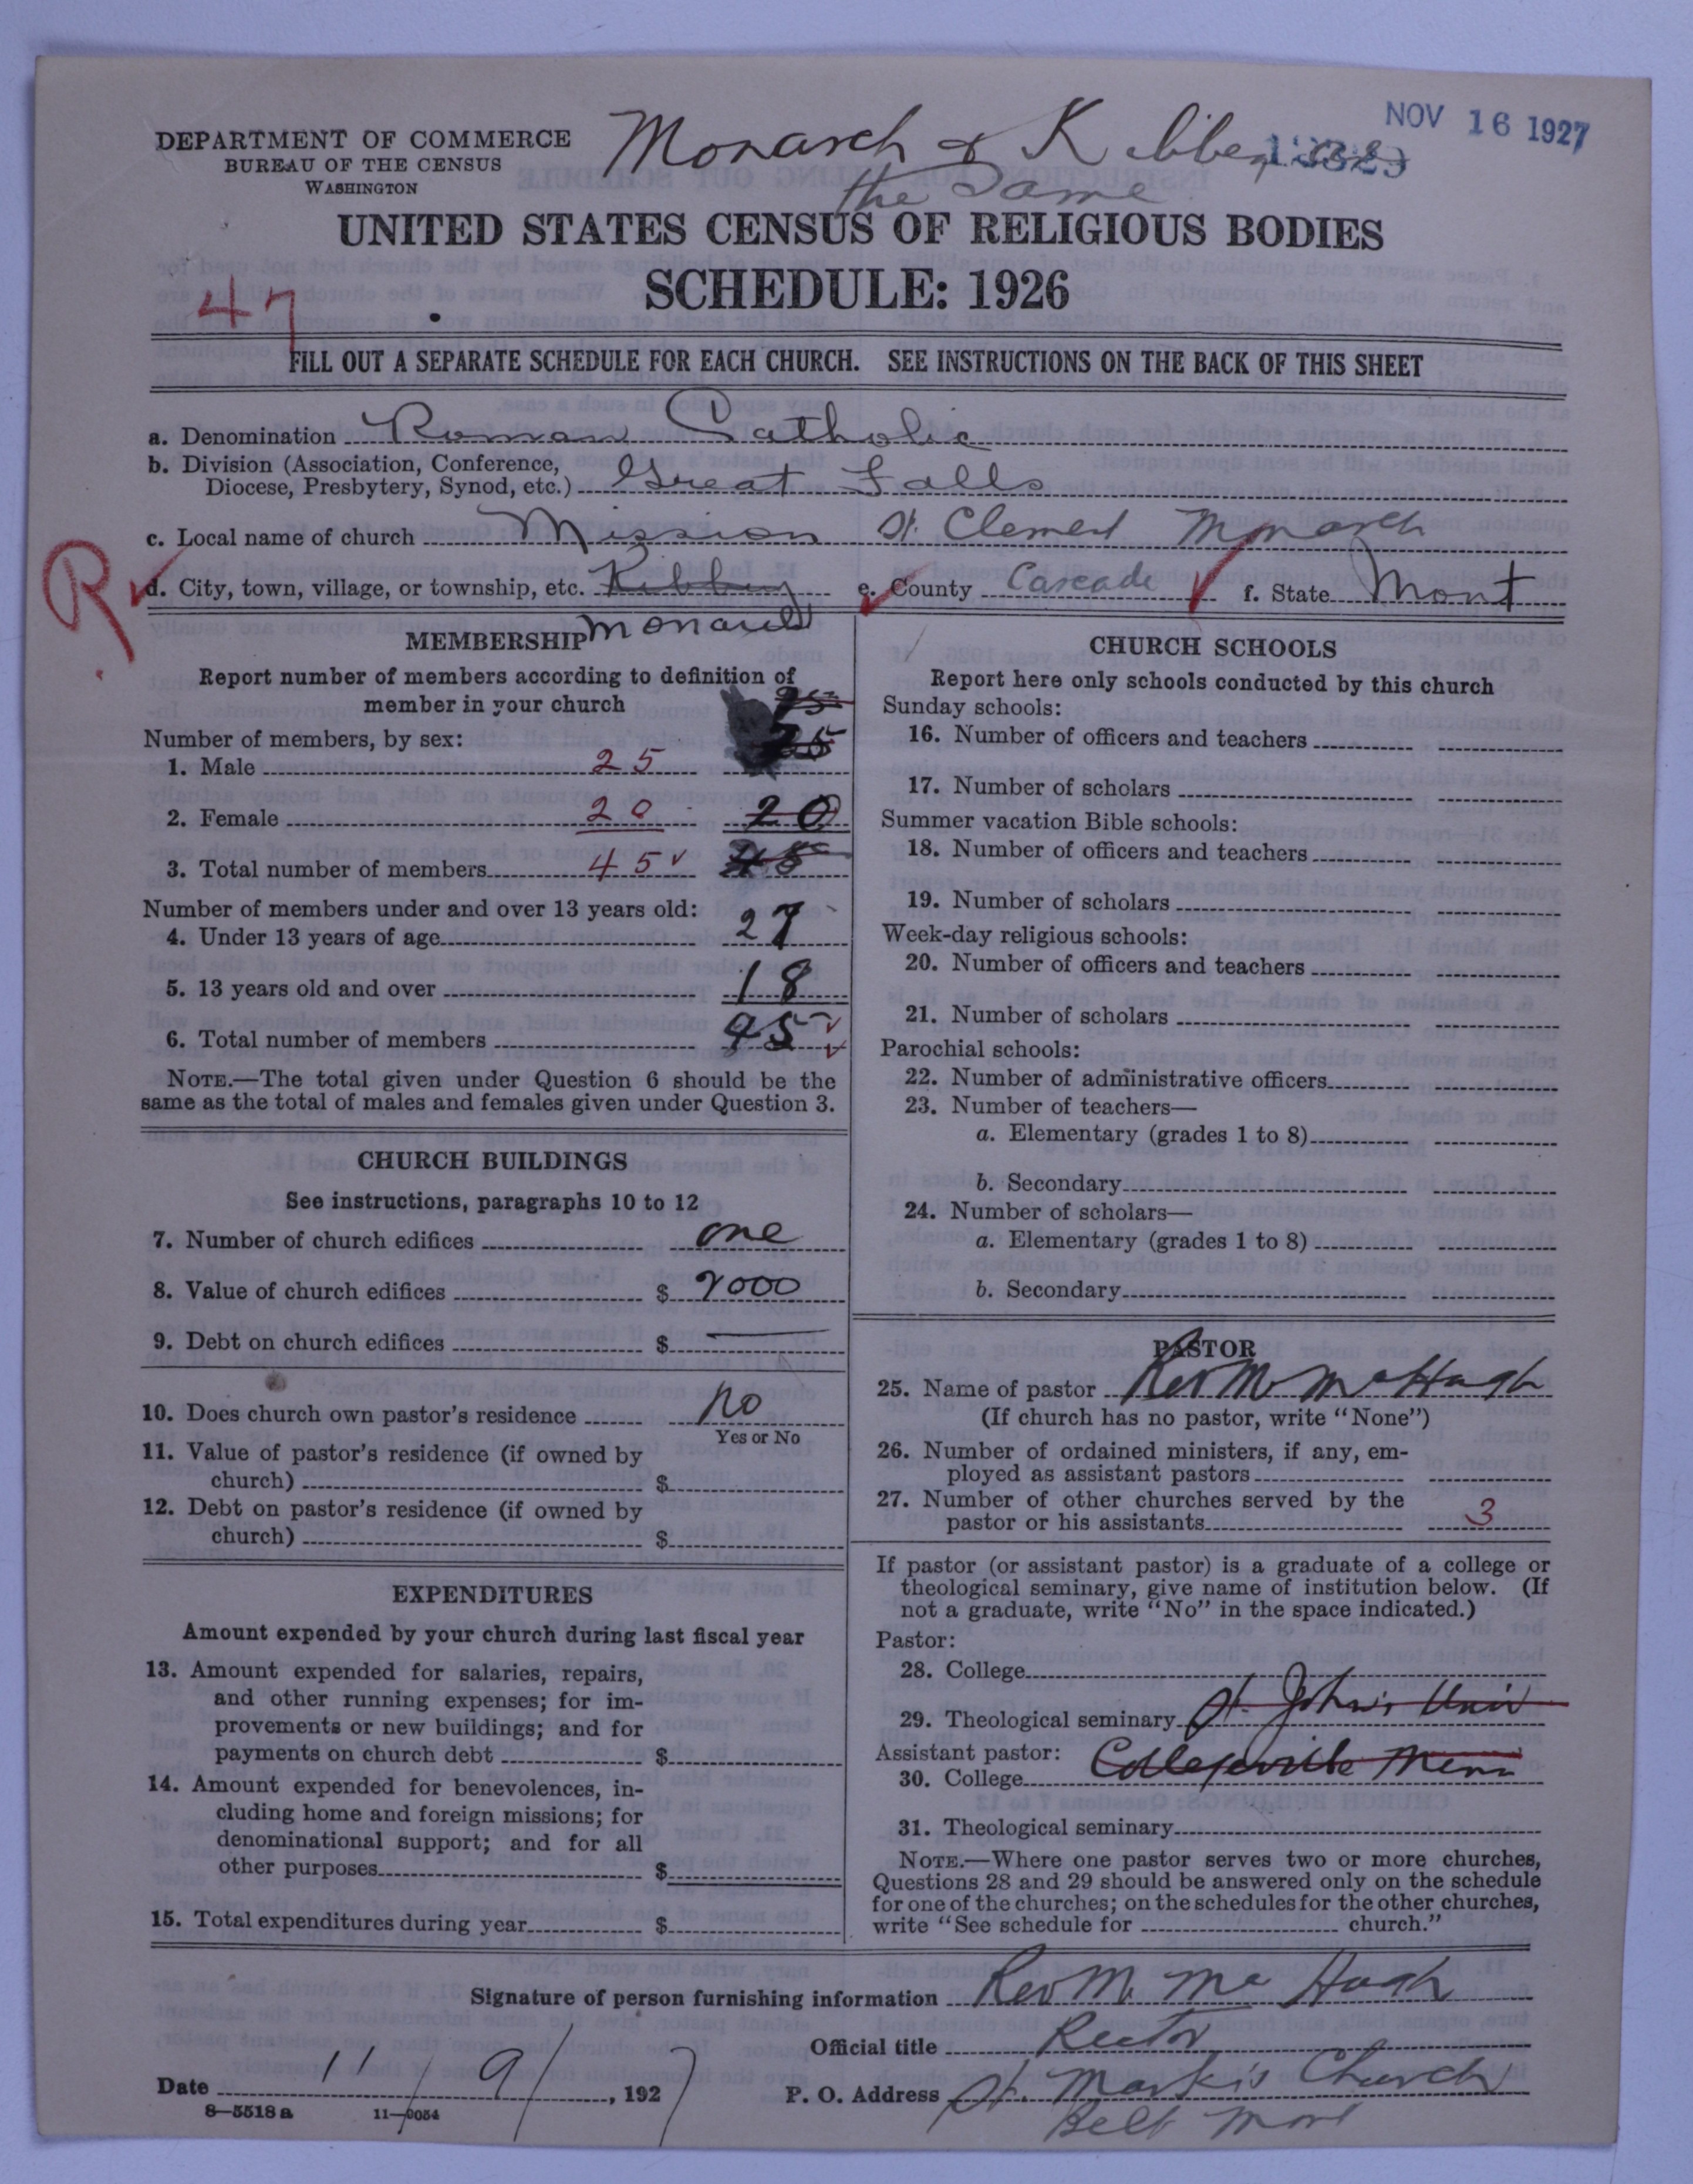 NOV 16 1927
DEPARTMENT OF COMMERCE
BUREAU OF THE CENSUS
WASHINGTON
Monarch & Kibbey are
the Same
UNITED STATES CENSUS OF RELIGIOUS BODIES
SCHEDULE: 1926
47
FILL OUT A SEPARATE SCHEDULE FOR EACH CHURCH. SEE INSTRUCTIONS ON THE BACK OF THIS SHEET
a. Denomination Roman Catholic
b. Division (Association, Conference,
Diocese, Presbytery, Synod, etc.) Great Falls
c. Local name of church Mission St. Clement Monarch
R
d. City, town, village, or township, etc. Kibbey e. County Cascade f. State Mont
Monarch
MEMBERSHIP
Report number of members according to definition of
member in your church
Number of members, by sex:
25
1. Male 25
2. Female 20 20
3. Total number of members 45 45
Number of members under and over 13 years old:
4. Under 13 years of age 27
5. 13 years old and over 18
6. Total number of members 45
NOTE.—The total given under Question 6 should be the
same as the total of males and females given under Question 3.
CHURCH BUILDINGS
See instructions, paragraphs 10 to 12
7. Number of church edifices one
8. Value of church edifices $ 2000
9. Debt on church edifices $ —
10. Does church own pastor's residence No
Yes or No
11. Value of pastor's residence (if owned by
church) $
12. Debt on pastor's residence (if owned by
church) $
EXPENDITURES
Amount expended by your church during last fiscal year
13. Amount expended for salaries, repairs,
and other running expenses; for im-
provements or new buildings; and for
payments on church debt $
14. Amount expended for benevolences, in-
cluding home and foreign missions; for
denominational support; and for all
other purposes $
15. Total expenditures during year $
CHURCH SCHOOLS
Report here only schools conducted by this church
Sunday schools:
16. Number of officers and teachers
17. Number of scholars
Summer vacation Bible schools:
18. Number of officers and teachers
19. Number of scholars
Week-day religious schools:
20. Number of officers and teachers
21. Number of scholars
Parochial schools:
22. Number of administrative officers
23. Number of teachers—
a. Elementary (grades 1 to 8)
b. Secondary
24. Number of scholars—
a. Elementary (grades 1 to 8)
b. Secondary
PASTOR
25. Name of pastor Rev M McHugh
(If church has no pastor, write "None")
26. Number of ordained ministers, if any, em-
ployed as assistant pastors
27. Number of other churches served by the
pastor or his assistants 3
If pastor (or assistant pastor) is a graduate of a college or
theological seminary, give name of institution below. (If
not a graduate, write "No" in the space indicated.)
Pastor:
28. College
29. Theological seminary St. John's Univ
Assistant pastor: Collegeville Minn
30. College
31. Theological seminary
NOTE.—Where one pastor serves two or more churches,
Questions 28 and 29 should be answered only on the schedule
for one of the churches; on the schedules for the other churches,
write "See schedule for church."
Signature of person furnishing information Rev M. Mc Hugh
Official title Rector
Date 11/9/, 1927 P. O. Address St. Mark's Church
Belt Mont
8—5518 a 11—9054